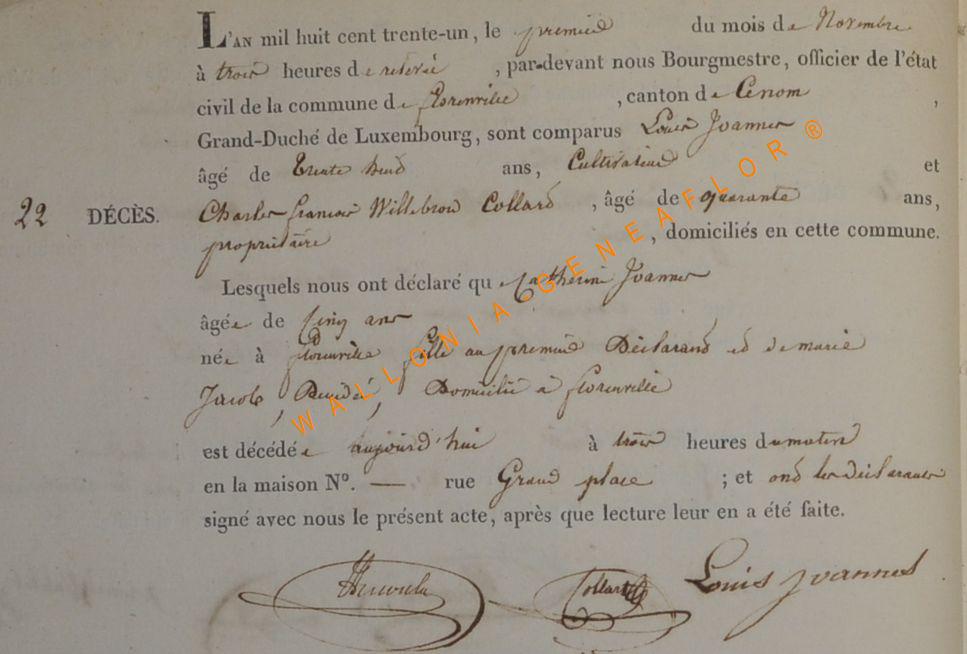 L'AN mil huit cent trente-un, le premier du mois de Novembre
à trois heures de relevée, par-devant nous Bourgmestre, officier de l'état
civil de la commune de florenville, canton de
Grand-Duché de Luxembourg, sont comparus Louis Joannes
âgé de trente huit ans, Cultivateur et
22 DÉCÈS. Charles francois Willebrod Collard, âgé de quarante ans,
propriétaire, domiciliés en cette commune.
Lesquels nous ont déclaré que Catherine Joannes
âgée de cinq ans
née à florenville fille au premier Déclarant et de marie
Jacob, Décédée, Domicilié à florenville
est décédée aujourd'hui à trois heures du matin
en la maison N°. — rue Grand place ; et ont les déclarants
signé avec nous le présent acte, après que lecture leur en a été faite.
Collard Louis Joannes
WALLONIA-GENEAFLOR®